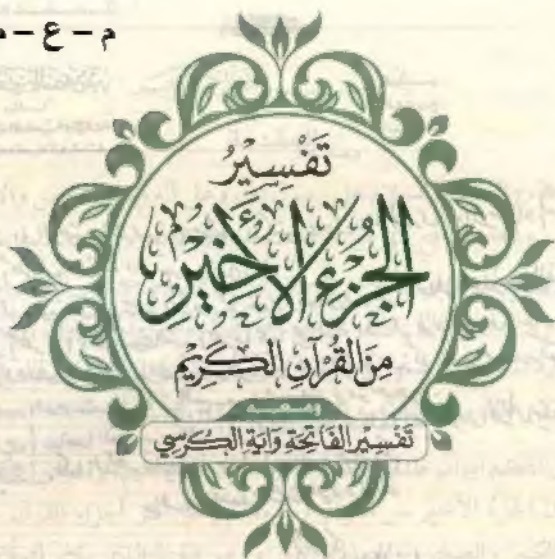 م - ع -
تَفْسِيرُ
الجُزْءِ الأَخِيرِ
مِنَ القُرْآنِ الكَرِيمِ
ومعه
تَفْسِيرُ الفَاتِحَةِ وَآيَةِ الكُرْسِي